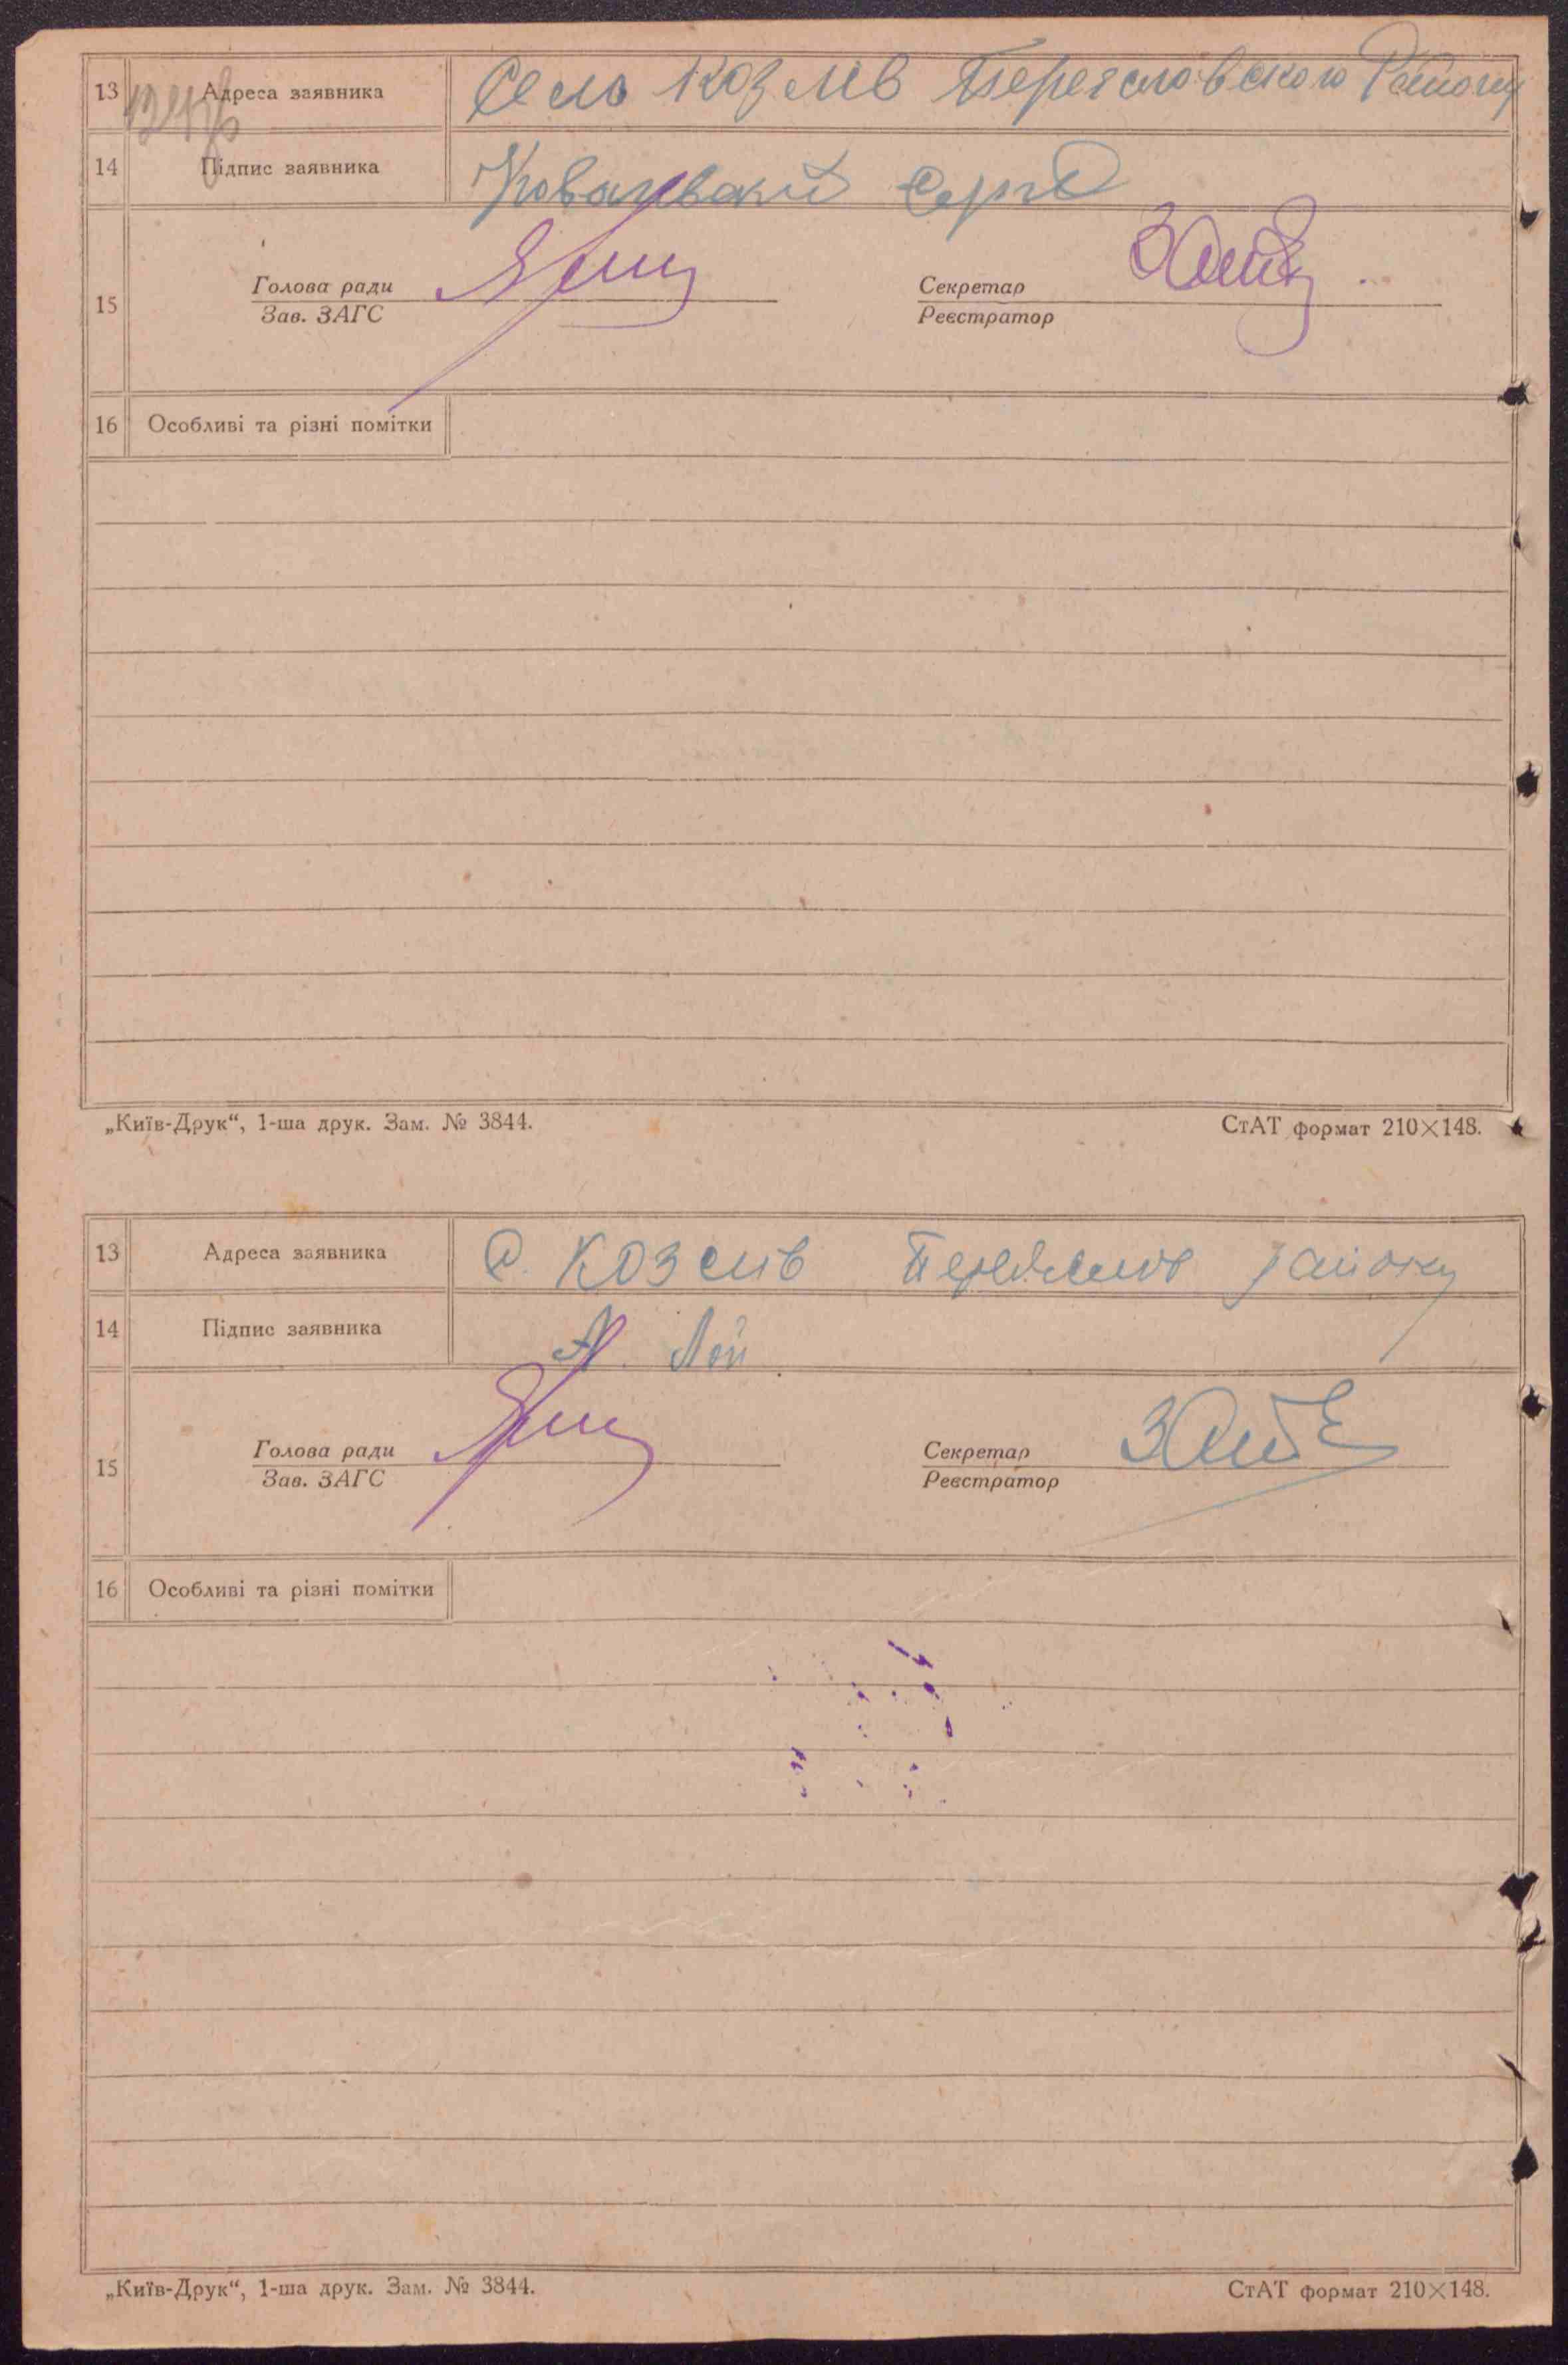 13 Адреса заявника Село Козлів Переяславского Району
14 Підпис заявника Ковалевский Сергій
15 Голова ради Секретар
Зав. ЗАГС Реєстратор
16 Особливі та різні помітки
„Київ-Друк“, 1-ша друк. Зам. № 3844. СтАТ формат 210×148.
13 Адреса заявника С. Козлів Переяслов району
14 Підпис заявника А. Лой
15 Голова ради Секретар
Зав. ЗАГС Реєстратор
16 Особливі та різні помітки
„Київ-Друк“, 1-ша друк. Зам. № 3844. СтАТ формат 210×148.